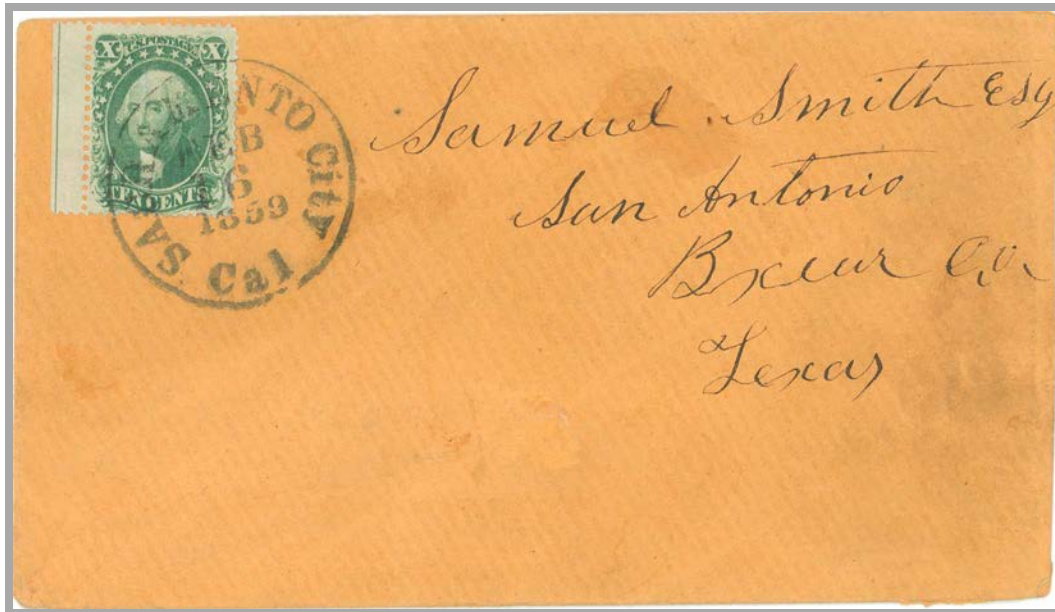 X U.S. POSTAGE X
TEN CENTS
SACRAMENTO City
FEB
16
1859
Cal
Samuel Smith Esq
San Antonio
Bxcar Co,
Texas